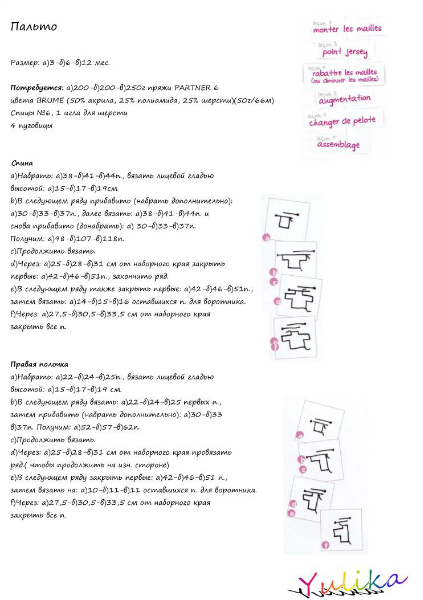 Пальто
Размер: а)3-б)6-в)12 мес.
Потребуется: а)200-б)200-в)250г пряжи PARTNER 6
цвета BRUME (50% акрила, 25% полиамида, 25% шерсти)(50г/66м)
Спицы №6, 1 игла для шерсти
4 пуговицы
monter les mailles
point jersey
rabattre les mailles
(ou diminuer les mailles)
augmentation
changer de pelote
assemblage
Спина
а)Набрать: а)38-б)41-в)44п., вязать лицевой гладью
высотой: а)15-б)17-в)19см.
b)В следующем ряду прибавить (набрать дополнительно):
а)30-б)33-в)37п., далее вязать: а)38-б)41-в)44п. и
снова прибавить (донабрать): а) 30-б)33-в)37п.
Получим: а)98-б)107-в)118п.
c)Продолжить вязать.
d)Через: а)25-б)28-в)31 см от наборного края закрыть
первые: а)42-б)46-в)51п., закончить ряд.
e)В следующем ряду также закрыть первые: а)42-б)46-в)51п.,
затем вязать: а)14-б)15-в)16 оставшихся п. для воротника.
f)Через: а)27,5-б)30,5-в)33,5 см от наборного края
закрыть все п.
Правая полочка
а)Набрать: а)22-б)24-в)25п., вязать лицевой гладью
высотой: а)15-б)17-в)19 см.
b)В следующем ряду вязать: а)22-б)24-в)25 первых п.,
затем прибавить (набрать дополнительно): а)30-б)33
в)37п. Получим: а)52-б)57-в)62п.
c)Продолжить вязать.
d)Через: а)25-б)28-в)31 см от наборного края провязать
ряд.( чтобы продолжить на изн. стороне)
e)В следующем ряду закрыть первые: а)42-б)46-в)51 п.,
затем вязать на: а)10-б)11-в)11 оставшихся п. для воротника.
f)Через: а)27,5-б)30,5-в)33,5 см от наборного края
закрыть все п.
Yulika